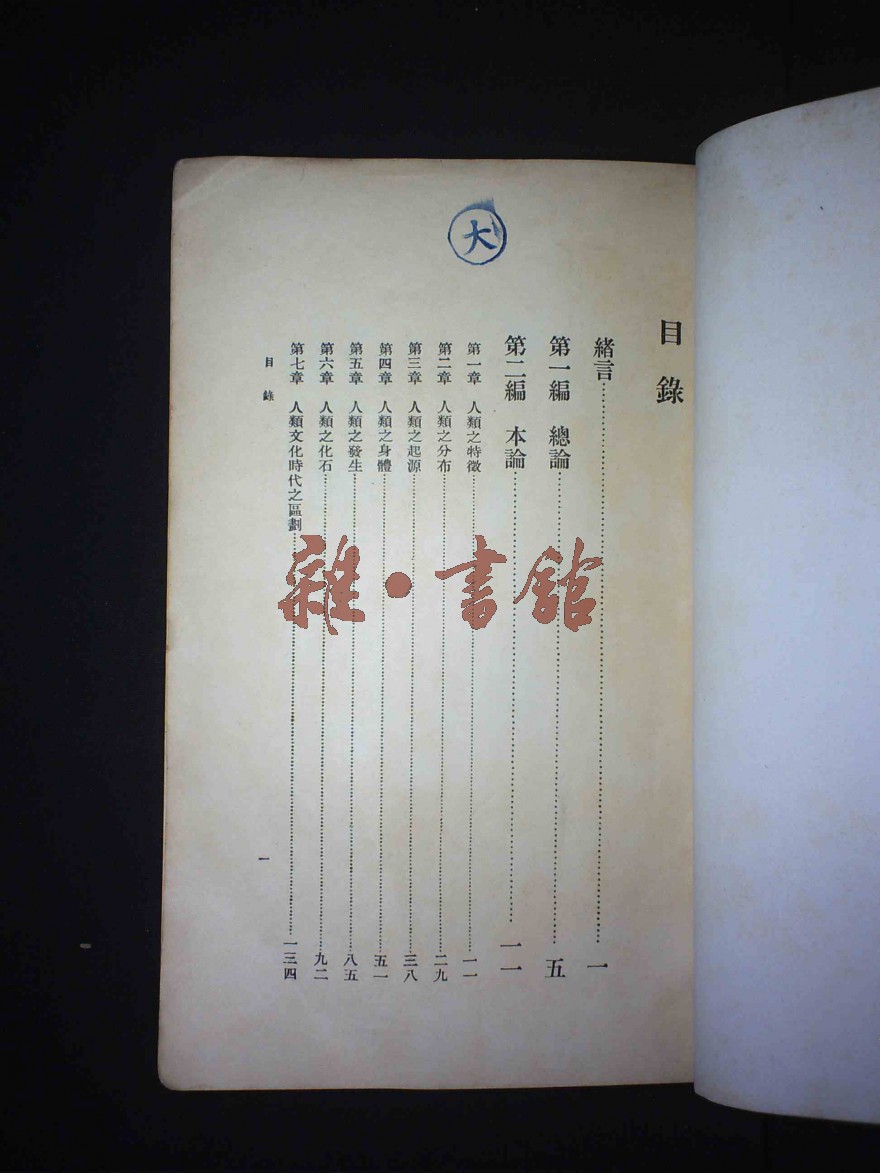 大
目錄
緒言……一
第一編　總論……五
第二編　本論……一一
第一章　人類之特徵……一一
第二章　人類之分布……二九
第三章　人類之起源……三八
第四章　人類之身體……五一
第五章　人類之發生……八五
第六章　人類之化石……九二
第七章　人類文化時代之區劃……一三四
目錄
一
雜·書館